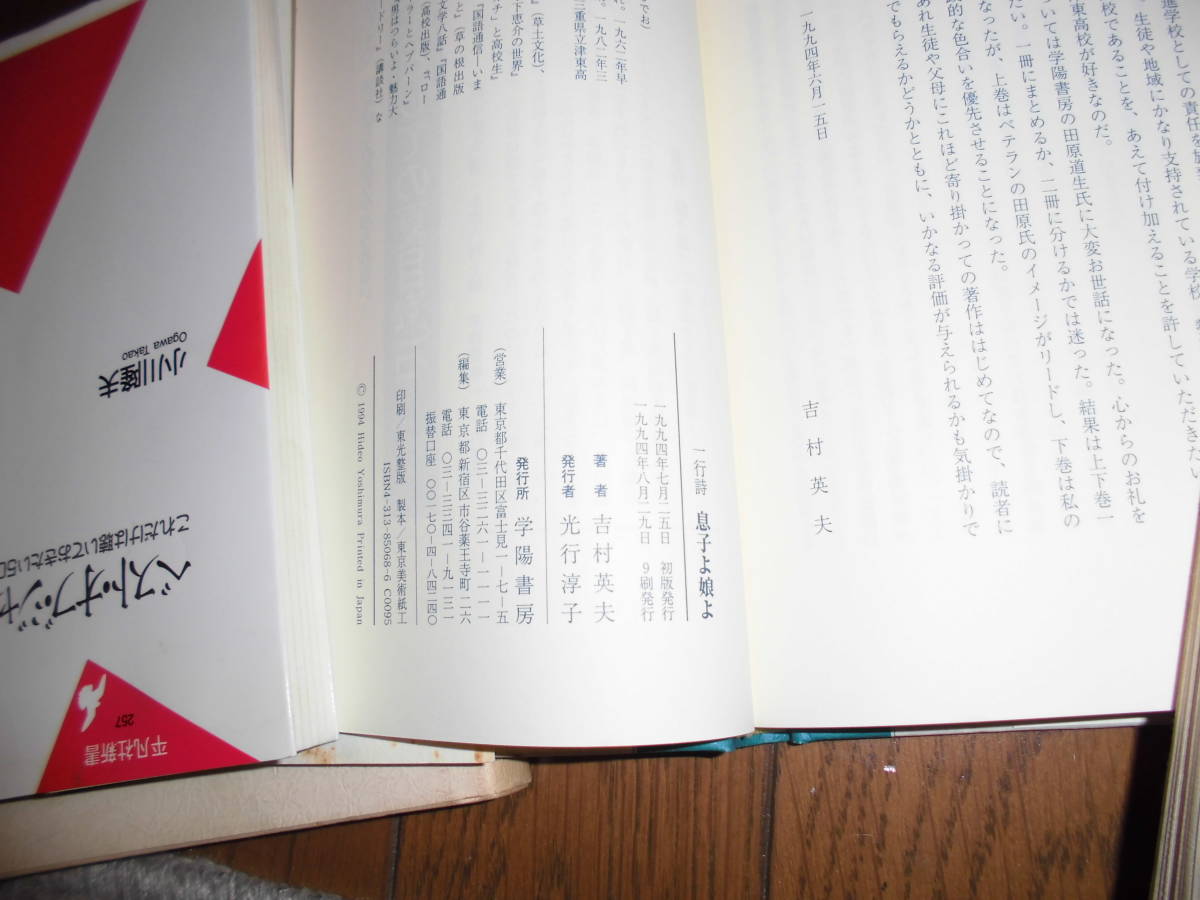 進学校としての責任を
、生徒や地域にかなり支持されている学校
校であることを、あえて付け加えることを許していただきた
東高校が好きなのだ。
ついては学陽書房の田原道生氏に大変お世話になった。心からのお礼を
たい。一冊にまとめるか、二冊に分けるかでは迷った。結果は上下巻一
なったが、上巻はベテランの田原氏のイメージがリードし、下巻は私の
的な色合いを優先させることになった。
あれ生徒や父母にこれほど寄り掛かっての著作ははじめてなので、読者に
でもらえるかどうかとともに、いかなる評価が与えられるかも気掛かりで
一九九四年六月一五日
吉村英夫
一行詩 息子よ娘よ
一九九四年七月二五日 初版発行
一九九四年八月二九日 9刷発行
著者 吉村英夫
発行者 光行淳子
発行所 学陽書房
(営業) 東京都千代田区富士見一―七―五
電話 〇三―三二六一―一一一一
(編集) 東京都新宿区市谷薬王寺町二六
電話 〇三―三二四一―九一三一
振替口座 〇〇一七〇―四―八四二四〇
印刷/東光整版 製本/東京美術紙工
ISBN4-313-85068-6 C0095
© 1994 Hideo Yoshimura Printed in Japan
でお)
れ。一九六二年早
。一九八二年三
三重県立津東高
』(草土文化)、
下恵介の世界』
チ」と高校生』
『国語通信―いま
と』(草の根出版
文学八話』『国語通
ラーとヘプバーン』
『男はつらいよ・魅力大
(高校出版)、『「ロー
ードリー』(講談社)な
小川隆夫
Ogawa Takao
これだけは聴いておきたい50
ベスト・オブ・ジャ
257
平凡社新書